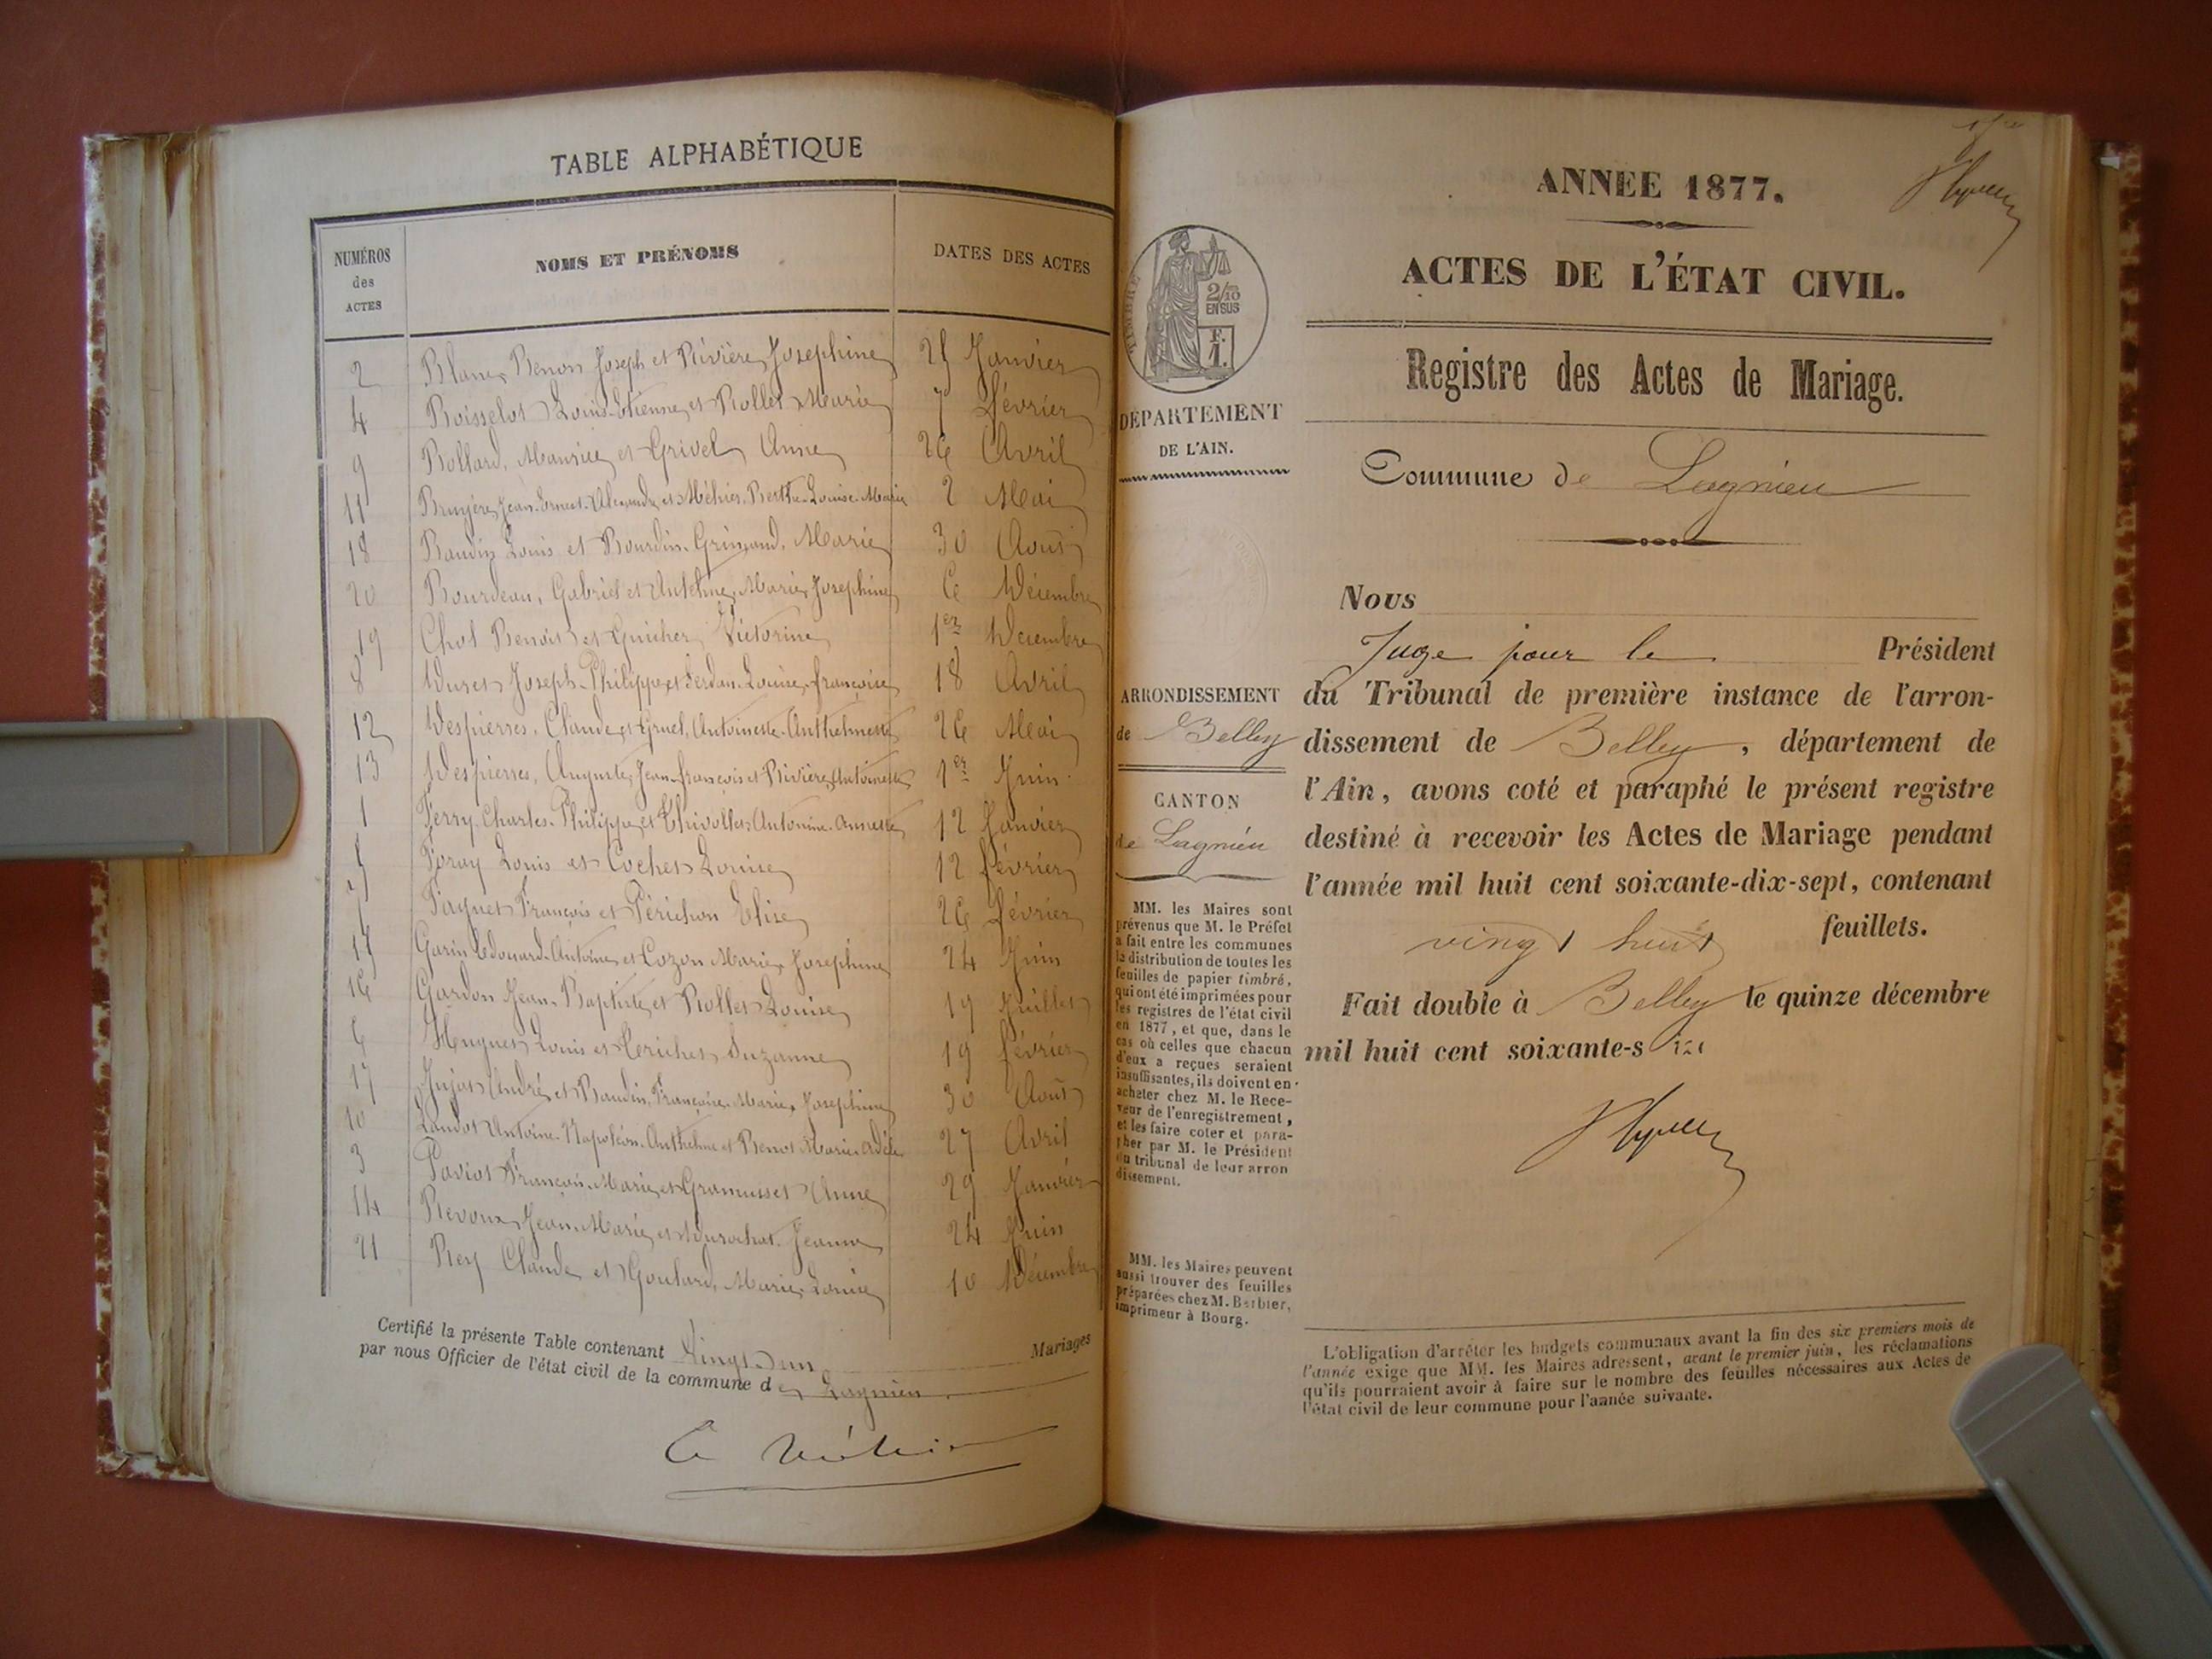 TABLE ALPHABÉTIQUE
NUMÉROS des ACTES
NOMS ET PRÉNOMS
DATES DES ACTES
2 Blanc Benoit Joseph et Rivière Josephine 25 Janvier
4 Boisselot Louis-Etienne et Rollet Marie 7 Février
9 Bollard, Maurice et Grivel Anne 26 Avril
11 Bruyère, Jean-Ernest-Alexandre et Méhier Berthe-Louise-Marie 2 Mai
18 Baudin Louis et Bourdin-Grimaud, Marie 30 Août
20 Bourdeau, Gabriel et Anthelme, Marie Josephine 6 Décembre
19 Chol Benoit et Guicher Victorine 1er Décembre
8 Duret Joseph-Philippe et Louise-Françoise 18 Avril
12 Despierres, Claude et Gruel, Antoinette-Anthelmette 26 Mai
13 Despierres, Auguste Jean-François et Rivière Antoinette 1er Juin
1 Ferry Charles-Philippe et Thivollet Antonine-Annette 12 Janvier
5 Foray Louis et Cochet Louise 12 Février
7 François et Périchon Elise 26 Février
15 Garin Edouard-Antoine et Cozon Marie Josephine 24 Juin
16 Gardon Jean-Baptiste et Rollet Louise 19 Juillet
6 Hugues Louis et Suzanne 19 Février
17 Jujat André et Baudin, Françoise-Marie-Josephine 30 Août
10 Landot Antoine-Napoléon-Anthelme et Marie-Adèle 27 Avril
3 Paviot François-Marie et Gramusset Anne 29 Janvier
14 Revoux Jean-Marie et Durochat Jeanne 24 Juin
21 Rey Claude et Goutard, Marie Louise 10 Décembre
Certifié la présente Table contenant Vingt un Mariages
par nous Officier de l'état civil de la commune de Lagnieu
TIMBRE
2/10
EN SUS
F.
1.
DÉPARTEMENT
DE L'AIN.
ARRONDISSEMENT
de Belley
CANTON
de Lagnieu
MM. les Maires sont
prévenus que M. le Préfet
a fait entre les communes
la distribution de toutes les
feuilles de papier timbré,
qui ont été imprimées pour
les registres de l'état civil
en 1877, et que, dans le
cas où celles que chacun
d'eux a reçues seraient
insuffisantes, ils doivent en
acheter chez M. le Rece-
veur de l'enregistrement,
et les faire coter et para-
pher par M. le Président
du tribunal de leur arron
dissement.
MM. les Maires peuvent
aussi trouver des feuilles
préparées chez M. Barbier,
imprimeur à Bourg.
ANNEE 1877.
ACTES DE L'ÉTAT CIVIL.
Registre des Actes de Mariage.
Commune de Lagnieu
Nous
Juge pour le Président
du Tribunal de première instance de l'arron-
dissement de Belley, département de
l'Ain, avons coté et paraphé le présent registre
destiné à recevoir les Actes de Mariage pendant
l'année mil huit cent soixante-dix-sept, contenant
vingt huit feuillets.
Fait double à Belley le quinze décembre
mil huit cent soixante-s
L'obligation d'arrêter les budgets communaux avant la fin des six premiers mois de
l'année exige que MM. les Maires adressent, avant le premier juin, les réclamations
qu'ils pourraient avoir à faire sur le nombre des feuilles nécessaires aux Actes de
l'état civil de leur commune pour l'année suivante.